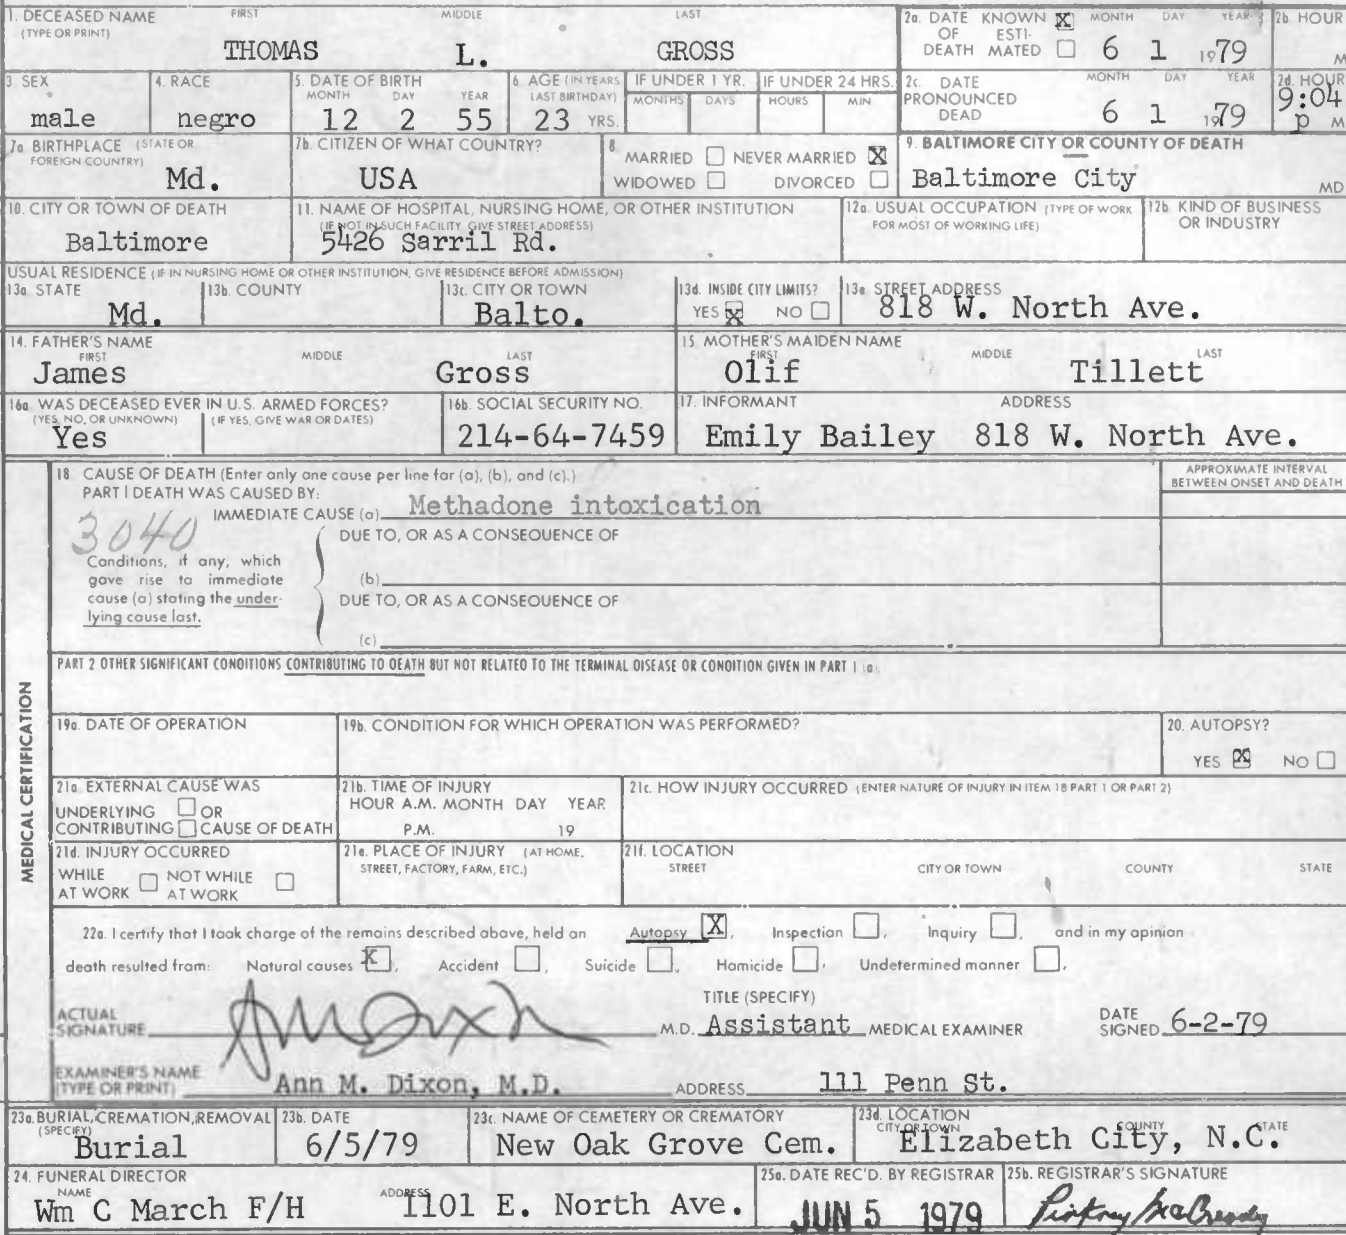 1. DECEASED NAME FIRST MIDDLE LAST
(TYPE OR PRINT)
THOMAS L. GROSS
2a. DATE KNOWN X MONTH DAY YEAR
OF ESTI-
DEATH MATED 6 1 1979
2b HOUR
M
3 SEX
male
4. RACE
negro
5. DATE OF BIRTH
MONTH DAY YEAR
12 2 55
6. AGE (IN YEARS
LAST BIRTHDAY)
23 YRS.
IF UNDER 1 YR.
MONTHS DAYS
IF UNDER 24 HRS.
HOURS MIN
2c. DATE MONTH DAY YEAR
PRONOUNCED
DEAD 6 1 1979
2d. HOUR
9:04
p M
7a BIRTHPLACE (STATE OR
FOREIGN COUNTRY)
Md.
7b. CITIZEN OF WHAT COUNTRY?
USA
8.
MARRIED NEVER MARRIED X
WIDOWED DIVORCED
9. BALTIMORE CITY OR COUNTY OF DEATH
Baltimore City MD
10. CITY OR TOWN OF DEATH
Baltimore
11. NAME OF HOSPITAL, NURSING HOME, OR OTHER INSTITUTION
(IF NOT IN SUCH FACILITY, GIVE STREET ADDRESS)
5426 Sarril Rd.
12a. USUAL OCCUPATION (TYPE OF WORK
FOR MOST OF WORKING LIFE)
12b. KIND OF BUSINESS
OR INDUSTRY
USUAL RESIDENCE (IF IN NURSING HOME OR OTHER INSTITUTION, GIVE RESIDENCE BEFORE ADMISSION)
13a STATE
Md.
13b. COUNTY
13c. CITY OR TOWN
Balto.
13d. INSIDE CITY LIMITS?
YES X NO
13e STREET ADDRESS
818 W. North Ave.
14. FATHER'S NAME
FIRST MIDDLE LAST
James Gross
15. MOTHER'S MAIDEN NAME
FIRST MIDDLE LAST
Olif Tillett
16a WAS DECEASED EVER IN U.S. ARMED FORCES?
(YES, NO, OR UNKNOWN) (IF YES, GIVE WAR OR DATES)
Yes
16b. SOCIAL SECURITY NO.
214-64-7459
17. INFORMANT ADDRESS
Emily Bailey 818 W. North Ave.
MEDICAL CERTIFICATION
18. CAUSE OF DEATH (Enter only one cause per line for (a), (b), and (c).)
PART I DEATH WAS CAUSED BY:
IMMEDIATE CAUSE (a) Methadone intoxication
APPROXIMATE INTERVAL
BETWEEN ONSET AND DEATH
3040
DUE TO, OR AS A CONSEQUENCE OF
Conditions, if any, which
gave rise to immediate
cause (a) stating the under-
lying cause last.
(b)
DUE TO, OR AS A CONSEQUENCE OF
(c)
PART 2 OTHER SIGNIFICANT CONDITIONS CONTRIBUTING TO DEATH BUT NOT RELATED TO THE TERMINAL DISEASE OR CONDITION GIVEN IN PART 1 (a).
19a. DATE OF OPERATION
19b. CONDITION FOR WHICH OPERATION WAS PERFORMED?
20. AUTOPSY?
YES X NO
21a EXTERNAL CAUSE WAS
UNDERLYING OR
CONTRIBUTING CAUSE OF DEATH
21b. TIME OF INJURY
HOUR A.M. MONTH DAY YEAR
P.M. 19
21c. HOW INJURY OCCURRED (ENTER NATURE OF INJURY IN ITEM 18 PART 1 OR PART 2)
21d. INJURY OCCURRED
WHILE NOT WHILE
AT WORK AT WORK
21e. PLACE OF INJURY (AT HOME,
STREET, FACTORY, FARM, ETC.)
21f. LOCATION
STREET CITY OR TOWN COUNTY STATE
22a. I certify that I took charge of the remains described above, held an Autopsy X, Inspection , Inquiry , and in my opinion
death resulted from: Natural causes X, Accident , Suicide , Homicide , Undetermined manner .
ACTUAL
SIGNATURE Ann M Dixon M.D.
TITLE (SPECIFY)
Assistant MEDICAL EXAMINER
DATE
SIGNED 6-2-79
EXAMINER'S NAME
(TYPE OR PRINT) Ann M. Dixon, M.D. ADDRESS 111 Penn St.
23a. BURIAL, CREMATION, REMOVAL
(SPECIFY)
Burial
23b. DATE
6/5/79
23c. NAME OF CEMETERY OR CREMATORY
New Oak Grove Cem.
23d. LOCATION
CITY OR TOWN COUNTY STATE
Elizabeth City, N.C.
24. FUNERAL DIRECTOR
NAME ADDRESS
Wm C March F/H 1101 E. North Ave.
25a. DATE REC'D. BY REGISTRAR
JUN 5 1979
25b. REGISTRAR'S SIGNATURE